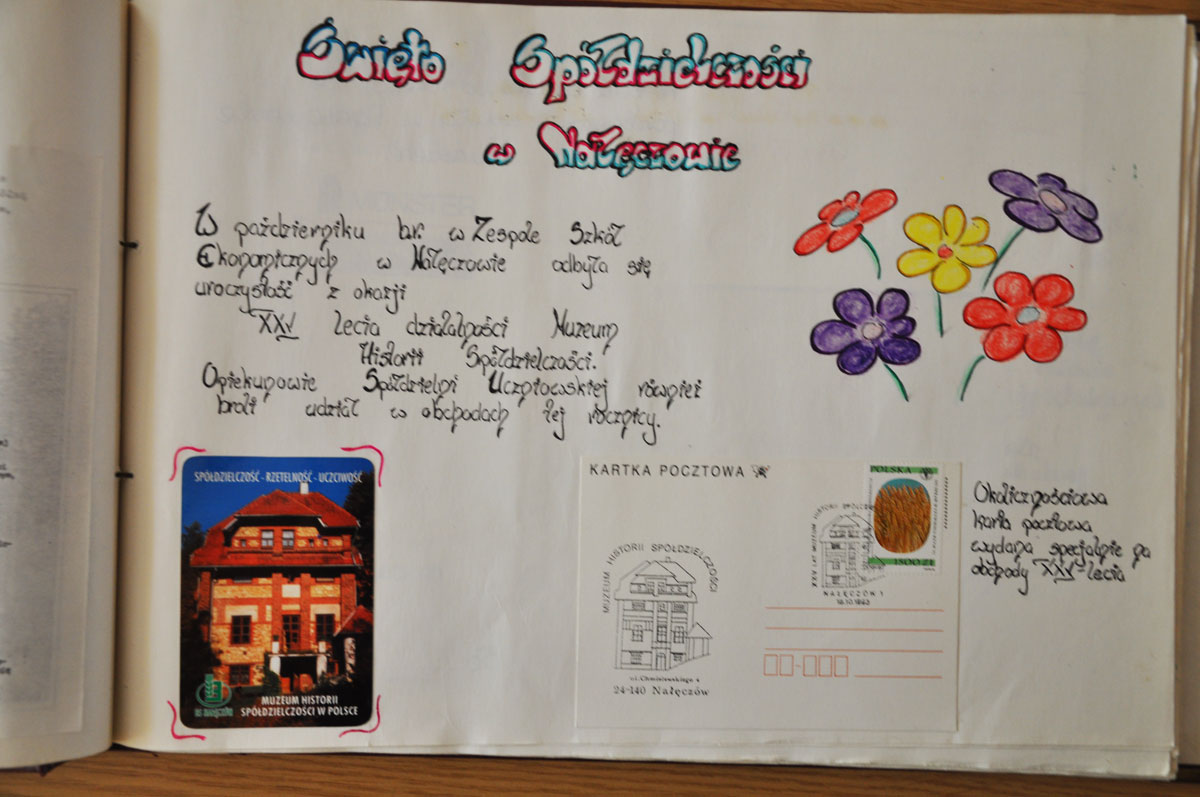 Święto Spółdzielczości
w Nałęczowie
W październiku br. w Zespole Szkół
Ekonomicznych w Nałęczowie odbyła się
uroczystość z okazji
XXV lecia działalności Muzeum
Historii Spółdzielczości.
Opiekunowie Spółdzielni Uczniowskiej również
brali udział w obchodach tej rocznicy.
SPÓŁDZIELCZOŚĆ - RZETELNOŚĆ - UCZCIWOŚĆ
MUZEUM HISTORII
SPÓŁDZIELCZOŚCI W POLSCE
KARTKA POCZTOWA
MUZEUM HISTORII SPÓŁDZIELCZOŚCI
ul. Chmielewskiego 4
24-140 Nałęczów
POLSKA
1500 ZŁ
XXV LAT MUZEUM HISTORII SPÓŁDZ
NAŁĘCZÓW 1
Okolicznościowa
karta pocztowa
wydana specjalnie na
obchody XXV-lecia